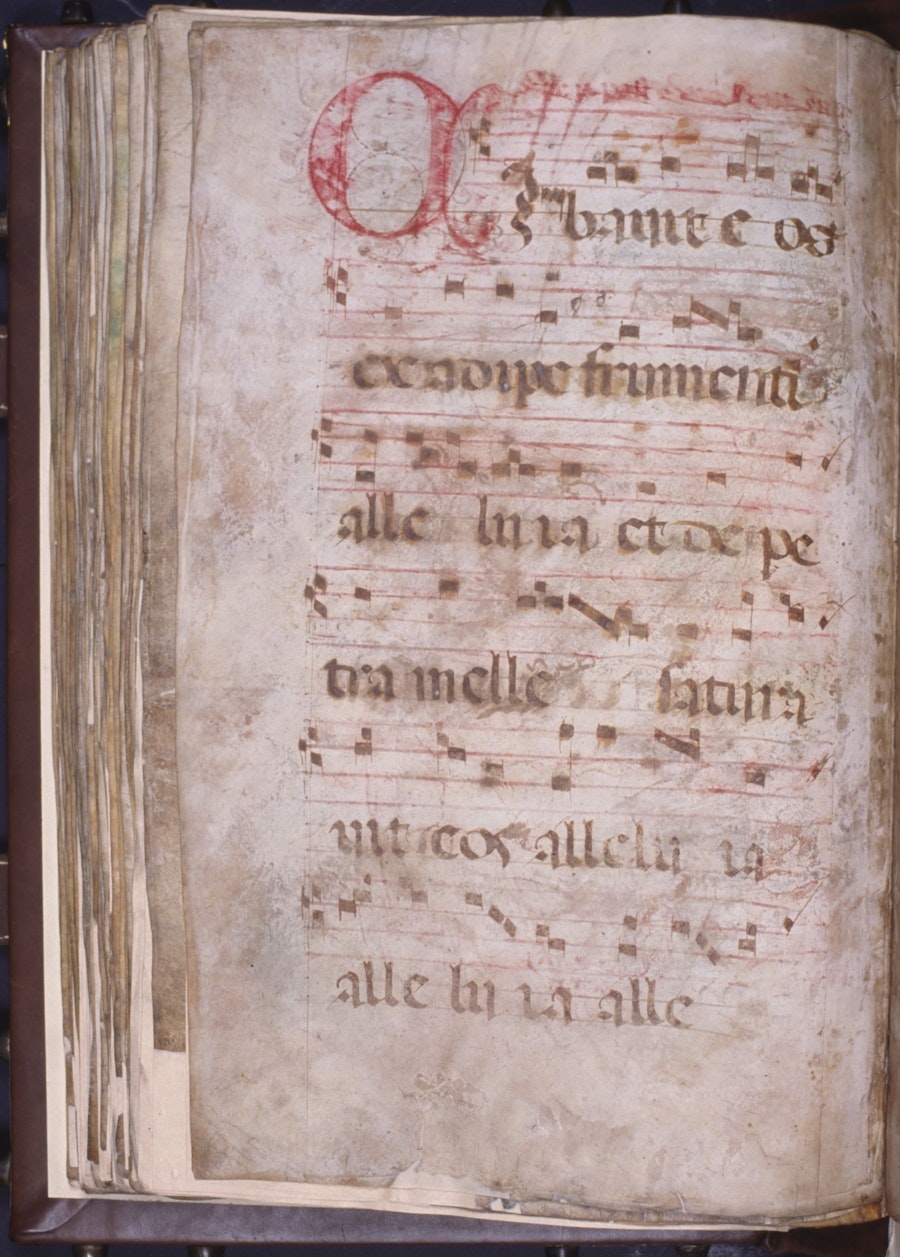 Cibauit eos
ex adipe frumenti
alle lu ia et de pe
tra melle satura
uit eos allelu ia
alle lu ia alle